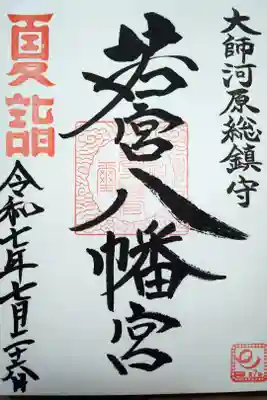 大師河原総鎮守
若宮八幡宮
夏詣
令和七年七月二十六日